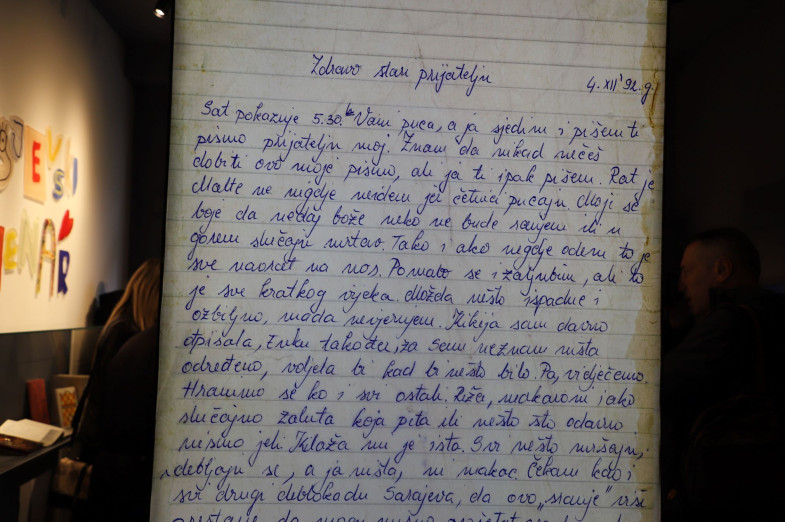 JEVSI
ENAR
Zdravo stari prijatelju
4. XII '92. g.
Sat pokazuje 5.30. h Vani puca, a ja sjedim i pišem ti
pismo prijatelju moj. Znam da nikad nećeš
dobiti ovo moje pismo, ali ja ti ipak pišem. Rat je
Malte ne nigdje neidem jer četnici pucaju. Moji se
boje da nedaj bože neko ne bude ranjen ili u
gorem slučaju mrtav. Tako i ako negdje odem to je
sve navrat na nos. Pomalo se i zaljubim, ali to
je sve kratkog vijeka. Možda nešto ispadne i
ozbiljno, mada nevjerujem. Kikija sam davno
otpisala, Zuku također, za Senu neznam ništa
određeno, voljela bi kad bi nešto bilo. Pa, vidjećemo.
Hranimo se ko i svi ostali. Riža, makaroni i ako
slučajno zaluta koja pita ili nešto što odavno
nismo jeli. Kilaža mi je ista. Svi nešto mršaju,
debljaju se, a ja ništa, ni makac. Čekam kao i
svi drugi deblokadu Sarajeva, da ovo „sranje" više
prestane, da mogu